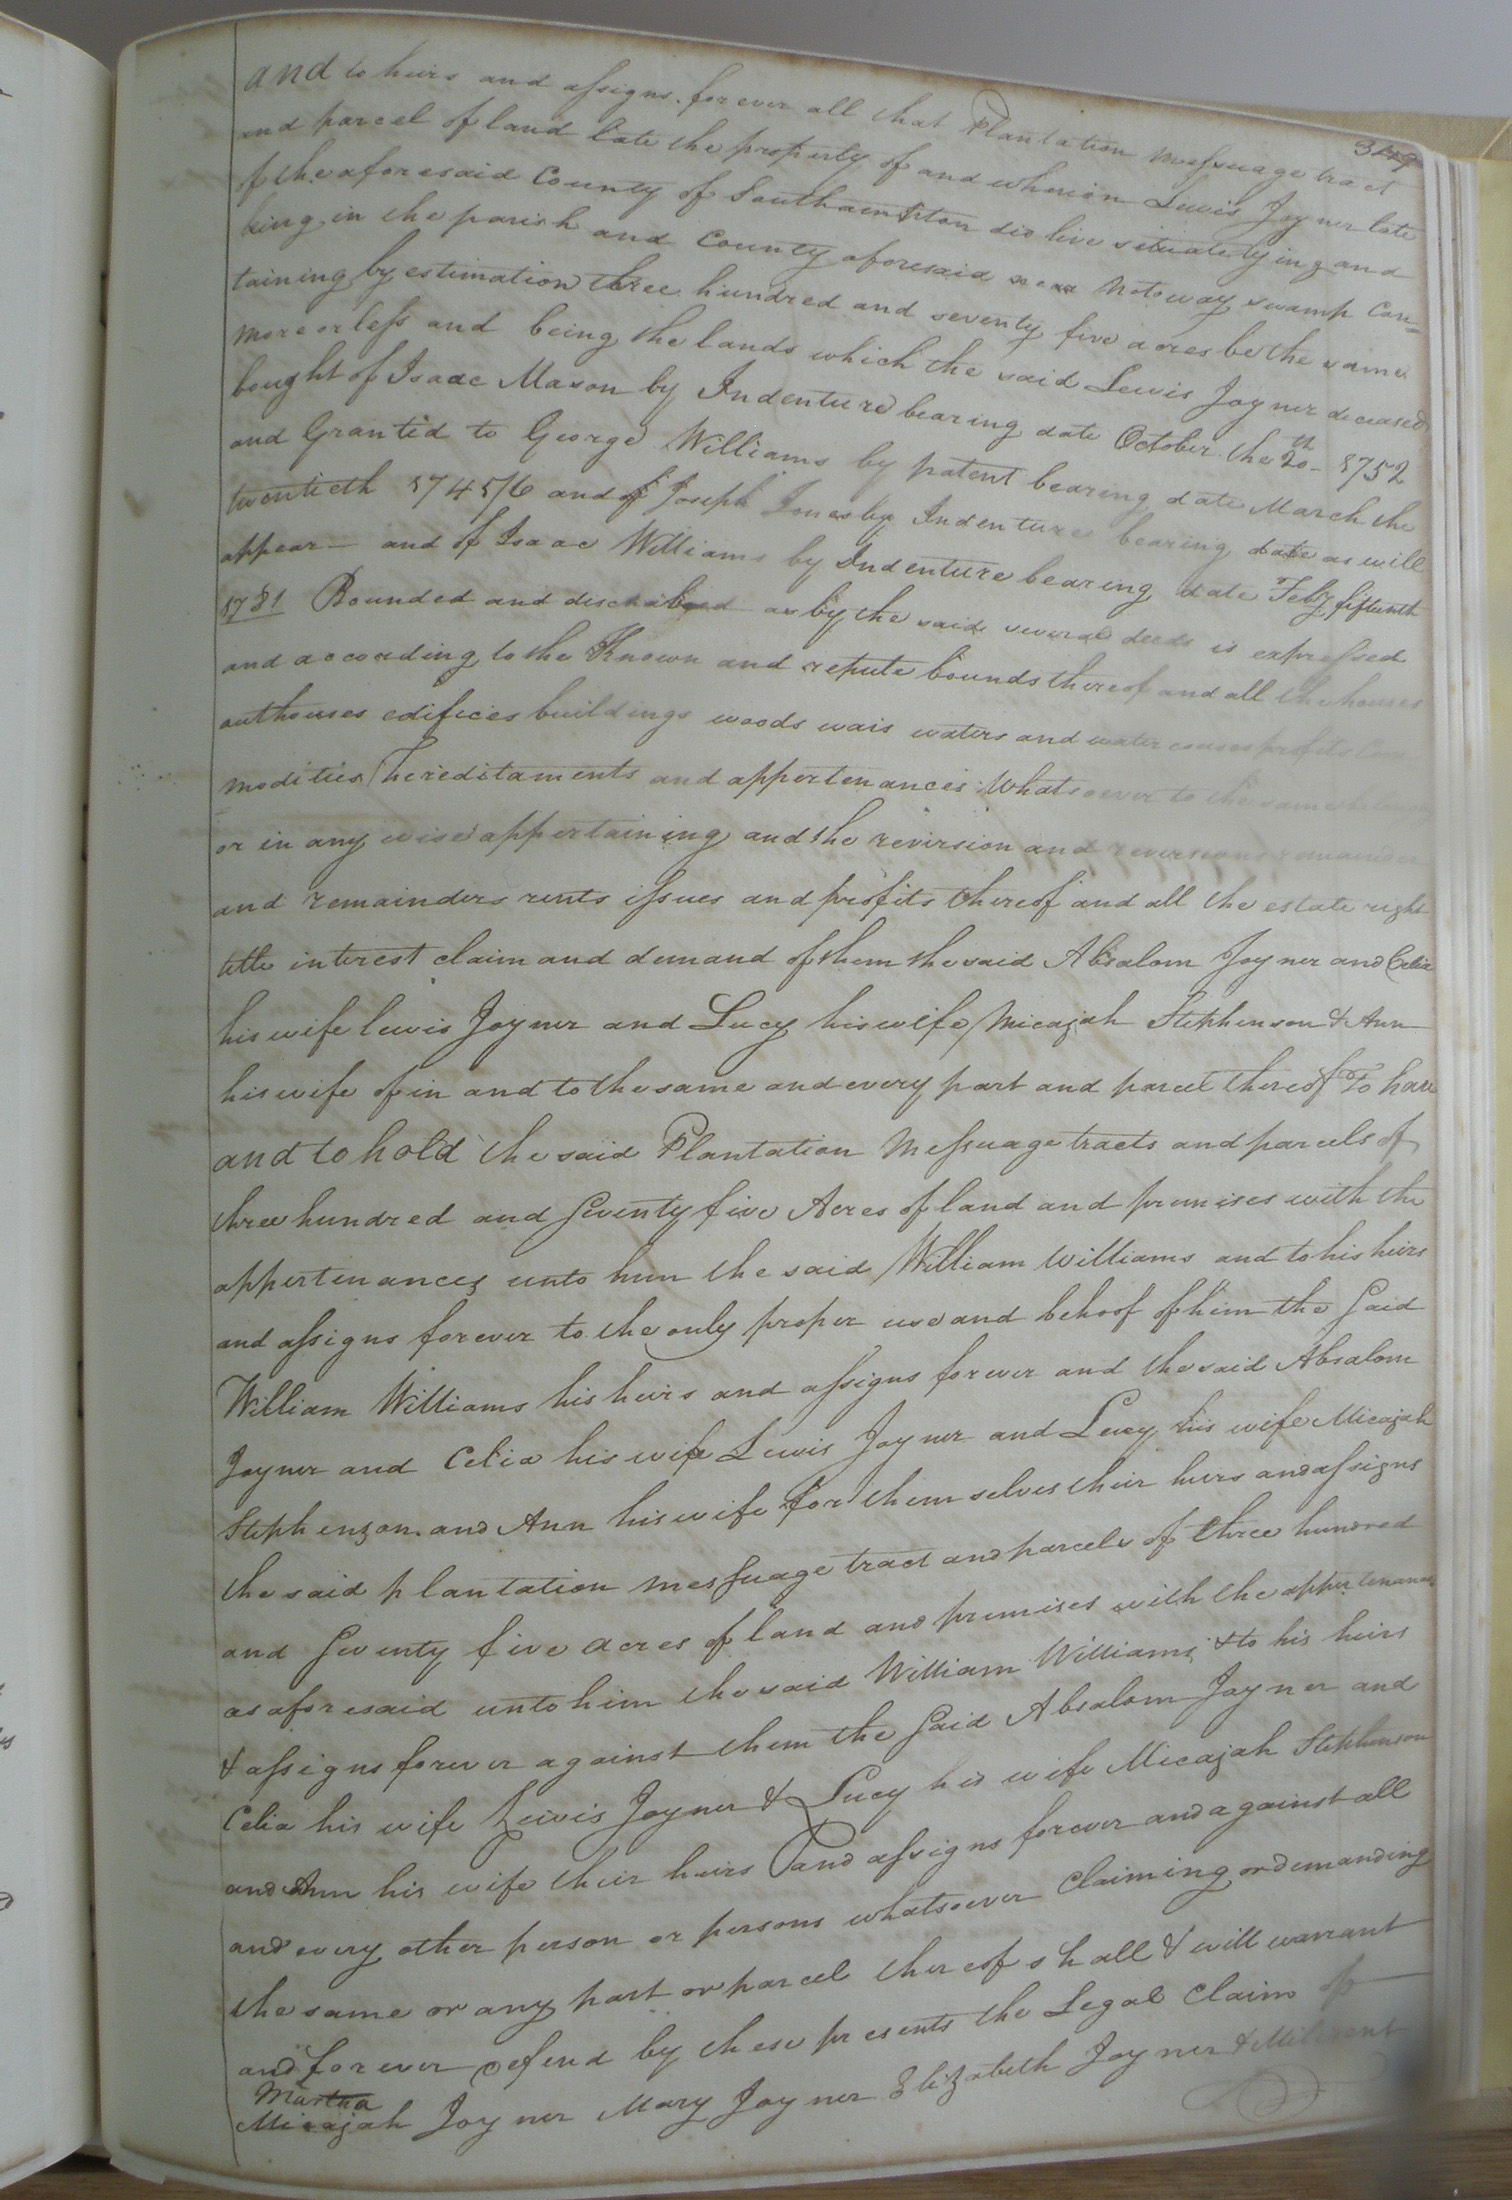 and to heirs and assigns forever all that Plantation messuage tract
and parcel of land late the property of and wherein Lewis Joyner late
of the aforesaid County of Southampton did live situate lying and
being in the parish and County aforesaid near Notoway swamp Con=
taining by estimation three hundred and seventy five acres be the same
more or less and being the lands which the said Lewis Joyner deceased
bought of Isaac Mason by Indenture bearing date October the 20th 1752
and Granted to George Williams by patent bearing date March the
twentieth 1745/6 and of Joseph Jones by Indenture bearing date as will
appear and of Isaac Williams by Indenture bearing date Feby fifteenth
1781 Bounded and described as by the said several deeds is expressed
and according to the Known and repute bounds thereof and all the houses
outhouses edifices buildings woods wais waters and water courses profits Com
modities hereditaments and appertenances Whatsoever to the same
or in any wise appertaining and the revirsion and reversions remainder
and remainders rents issues and profits thereof and all the estate right
title interest claim and demand of them the said Absalom Joyner and Celia
his wife lewis Joyner and Lucy his wife Micajah Stephenson & Ann
his wife of in and to the same and every part and parcel thereof To have
and to hold the said Plantation Messuage tracts and parcels of
three hundred and Seventy five Acres of land and premises with the
appertenances unto him the said William Williams and to his heirs
and assigns forever to the only proper use and behoof of him the Said
William Williams his heirs and assigns forever and the said Absalom
Joyner and Celia his wife Lewis Joyner and Lucy his wife Micajah
Stephenzon and Ann his wife for themselves their heirs and assigns
the said plantation messuage tract and parcels of three hundred
and Seventy five acres of land and premises with the appertenances
as aforesaid unto him the said William Williams & to his heirs
& assigns forever against them the Said Absalom Joyner and
Celia his wife Lewis Joyner & Lucy his wife Micajah Stephenson
and Ann his wife their heirs and assigns forever and against all
and every other person or persons whatsoever Claiming or demanding
the same or any part or parcel thereof shall & will warrant
and forever defend by these presents the Legal Claim of
Martha
Micajah Joyner Mary Joyner Elizabeth Joyner & Milicent